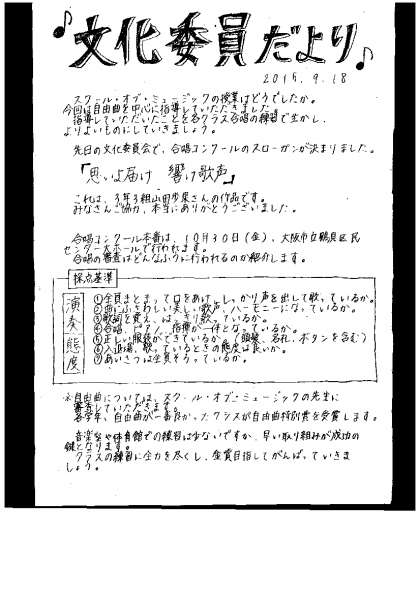 文化委員だより
2015.9.18
スクール・オブ・ミュージックの授業はどうでしたか。
今回は自由曲を中心に指導していただきました。
指導していただいたことを各クラス合唱の練習で生かし、
よりよいものにしていきましょう。
先日の文化委員会で、合唱コンクールのスローガンが決まりました。
「思いよ届け 響け歌声」
これは、3年3組山田歩果さんの作品です。
みなさんご協力、本当にありがとうございました。
合唱コンクール本番は、10月30日(金)、大阪市立鶴見区民
センター大ホールで行われます。
合唱の審査はどんなふうに行われるのか紹介します。
採点基準
演奏態度
①全員まとまって口をあけ、しっかり声を出して歌っているか。
②曲にふさわしい美しい歌声、ハーモニーになっているか。
③歌詞を覚え、はっきり歌っているか。
④合唱、ピアノ、指揮が一体となっているか。
⑤正しい服装ができているか。(頭髪、名札、ボタンを含む)
⑥入退場、歌っているときの態度は良いか。
⑦あいさつは全員そろっているか。
※自由曲については、スクール・オブ・ミュージックの先生に
審査していただきます。
各学年、自由曲が一番良かったクラスが自由曲特別賞を受賞します。
音楽室や体育館での練習は少ないですが、早い取り組みが成功の
鍵となります。
クラスの練習に全力を尽くし、金賞目指してがんばっていきま
しょう。